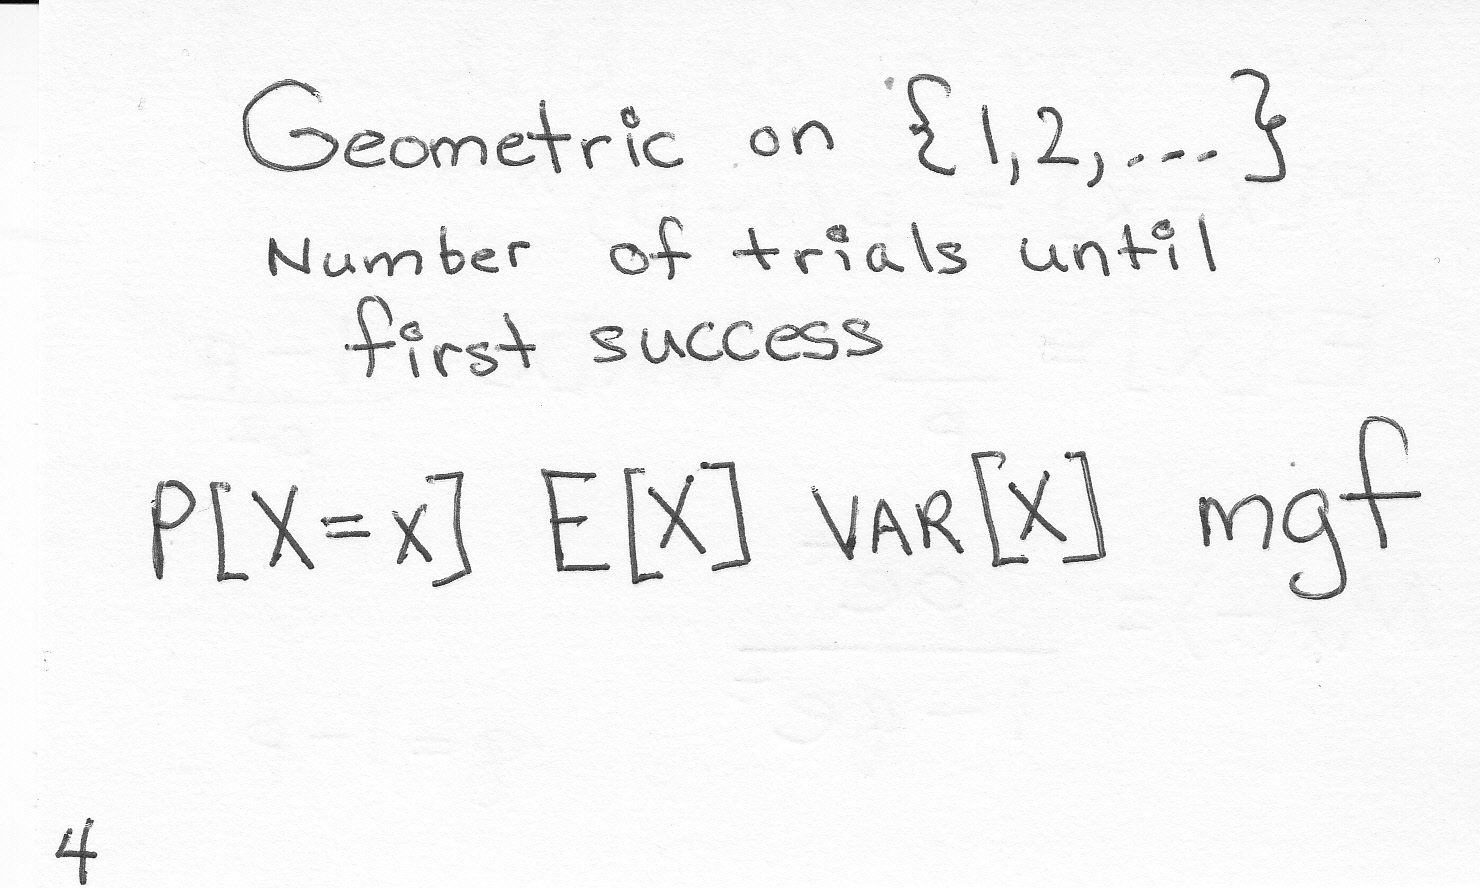 Geometric on {1,2,...}
Number of trials until
first success
P[X=x] E[X] VAR[X] mgf
4